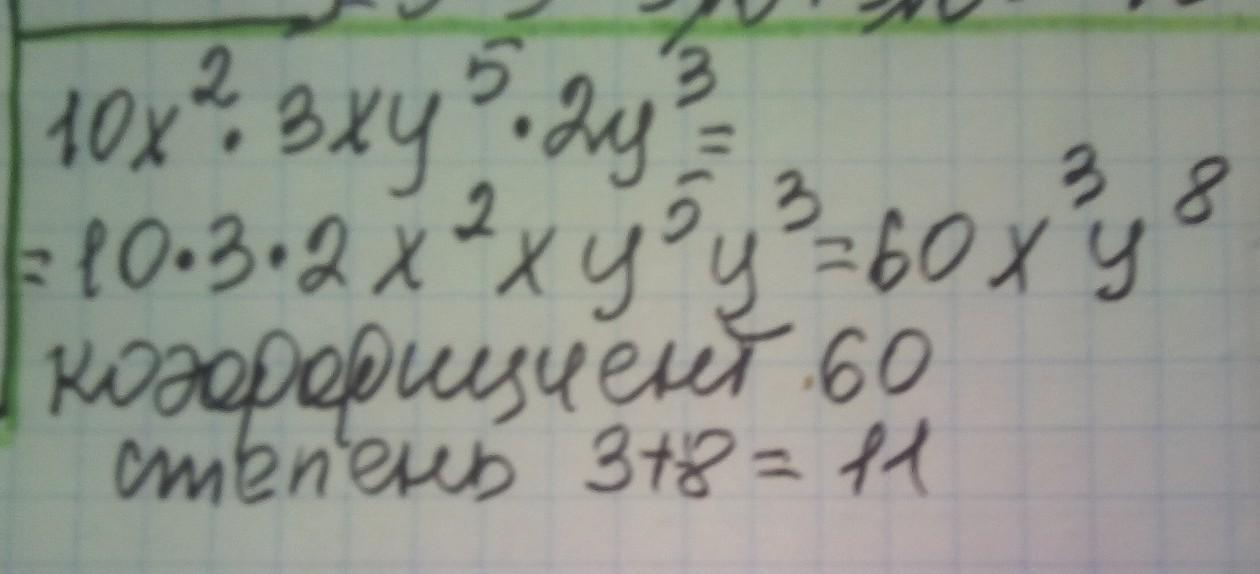 10x²·3xy⁵·2y³=
=10·3·2x²xy⁵y³=60x³y⁸
коэффициент 60
степень 3+8=11